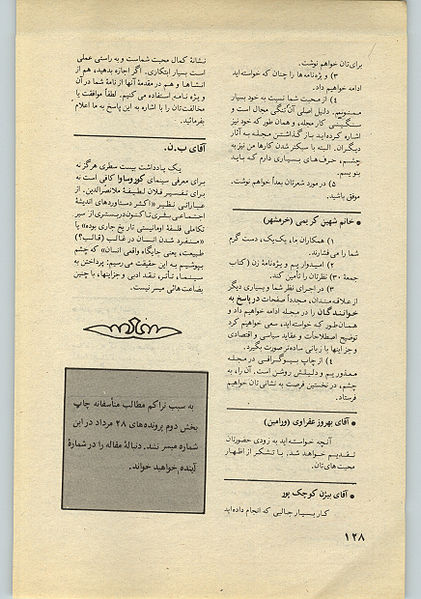 برای‌تان خواهم نوشت.
۳) و ویژه‌نامه‌ها را چنان که خواسته‌اید
ادامه خواهیم داد.
۴) از محبت شما نسبت به خود بسیار
ممنونیم. دلیل اصلی آن تنگی مجال است و
سنگینی کار مجله، و همان طور که خود نیز
اشاره کرده‌اید باز گذاشتن مجله به آثار
دیگران. البته با سبکتر شدن کارها من نیز به
چشم، حرف‌های بسیاری دارم که باید
بنویسم.
۵) در مورد شعرتان بعداً خواهم نوشت.
موفق باشید.
• خانم شهین کریمی (خرمشهر)
۱) همکاران ما، یک‌یک، دست گرم
شما را می‌فشارند.
۲) امیدوارم ویژه‌نامهٔ زن (کتاب
جمعهٔ ۳۰) نظرتان را تأمین کند.
۳) در اجرای نظر شما و بسیاری دیگر
از علاقه‌مندان، مجدداً صفحات در پاسخ به
خوانندگان را در مجله ادامه خواهیم داد و
همان‌طور که خواسته‌اید، سعی خواهیم کرد
توضیح اصطلاحات و عقاید سیاسی و اقتصادی
و جز اینها با زبانی ساده‌تر صورت بگیرد.
۴) از چاپ بیوگرافی در مجله
معذوریم و دلیلش روشن است. آن را، به
چشم، در نخستین فرصت به نشانی‌تان خواهیم
فرستاد.
• آقای بهروز عفراوی (ورامین)
آنچه خواسته‌اید به زودی حضورتان
تقدیم خواهد شد. با تشکر از اظهار
محبت‌های‌تان.
• آقای بیژن کوچک پور
کار بسیار جالبی که انجام داده‌اید
نشانهٔ کمال محبت شماست و به راستی عملی
است بسیار ابتکاری. اگر اجازه بدهید، هم از
انشاها و هم در مقدمهٔ آنها از نامهٔ شما در آن
ویژه نامه استفاده می کنیم. لطفاً موافقت یا
مخالفت‌تان را با اشاره به این پاسخ به ما اعلام
بفرمائید.
آقای ب.ن.
یک یادداشت بیست سطری هرگز نه
برای معرفی سینمای کوروساوا کافی است نه
برای تفسیر فلان لطیفهٔ ملانصرالدین. از
عباراتی نظیر «اکثر دستاوردهای اندیشهٔ
اجتماعی بشری تاکنون در بستری از سیر
تکاملی فلسفهٔ اومانیستی تاریخ جاری بوده» یا
«منفرد شدن انسان در غالب (قالب؟)
طبیعت، یعنی جایگاه واقعی انسان» که چشم
بپوشیم به این حقیقت می‌رسیم: پرداختن به
سینما، تئاتر، نقد ادبی و جز اینها، با چنین
بضاعت‌هائی میسر نیست.
به سبب تراکم مطالب متأسفانه چاپ
بخش دوم پرونده‌های ۲۸ مرداد در این
شماره میسر نشد. دنبالهٔ مقاله را در شمارهٔ
آینده خواهید خواند.
۱۲۸